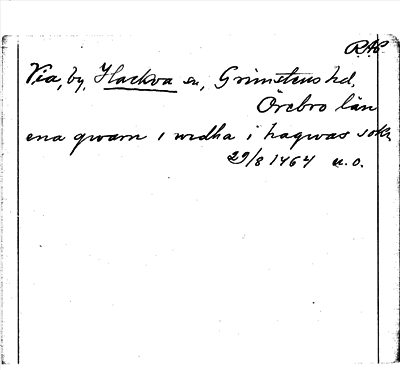 RAP
Via, by, Hackva sn, Grimstens hd.
Örebro län
ena qwarn i widha i hagwas sokn
29/8 1464 u. o.